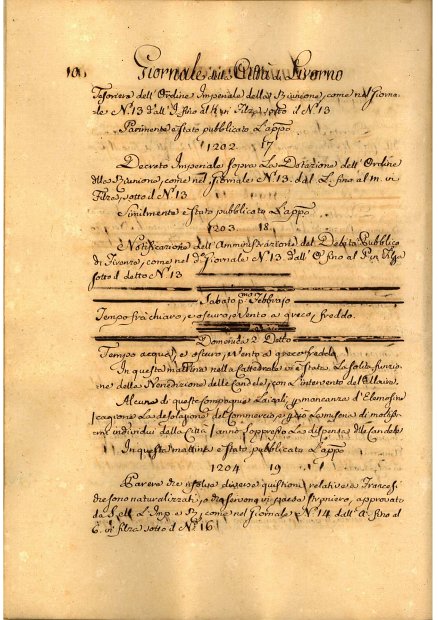 10. Giornale di Città di Livorno
Tesoriere dell'Ordine Imperiale della Riunione, come nel Giorna-
le N. 13 dall' I. fino al vi Filza sotto il N. 13
Parimente è stato pubblicato L'appo
1202 17
Decreto Imperiale sopra La Dotazione dell'Ordine
della Riunione, come nel Giornale N. 13. dal L. fino al m. vi
Filza, sotto d. N. 13
Similmente è stato pubblicato L'appo
1203 18
e Notificazione dell'Amministrazione del Debito Pubblico
di Firenze, come nel Giornale N. 13. dall' O. fino al P. vi Filza
sotto il detto N. 13
Sabato p.mo Febbrajo
Tempo frà chiaro, e oscuro, e Vento a greco, freddo.
Domenica 2 Detto
Tempo acqua, e oscuro, e Vento a greco freddo
In questa mattina nella Cattedrale vi è stata La solita funzio-
ne della Benedizione delle Candele, con l'intervento del Maire.
Alcune di queste Compagnie Laicali, p mancanza d'Elemosine
cagione La desolazione del Commercio, e p La miseria di moltissi-
mi individui della Città anno soppresso La dispensa delle Candele
In questa mattina è stato pubblicato L'appo
1204 19
Parere che risolve diverse questioni relative a Francesi
che sono naturalizzati, o che servono in paesa straniero, approvato
da S. M. L'Imp. e R., come nel Giornale N. 14 dall' a. fino al
6. vi filza sotto d. N. 16